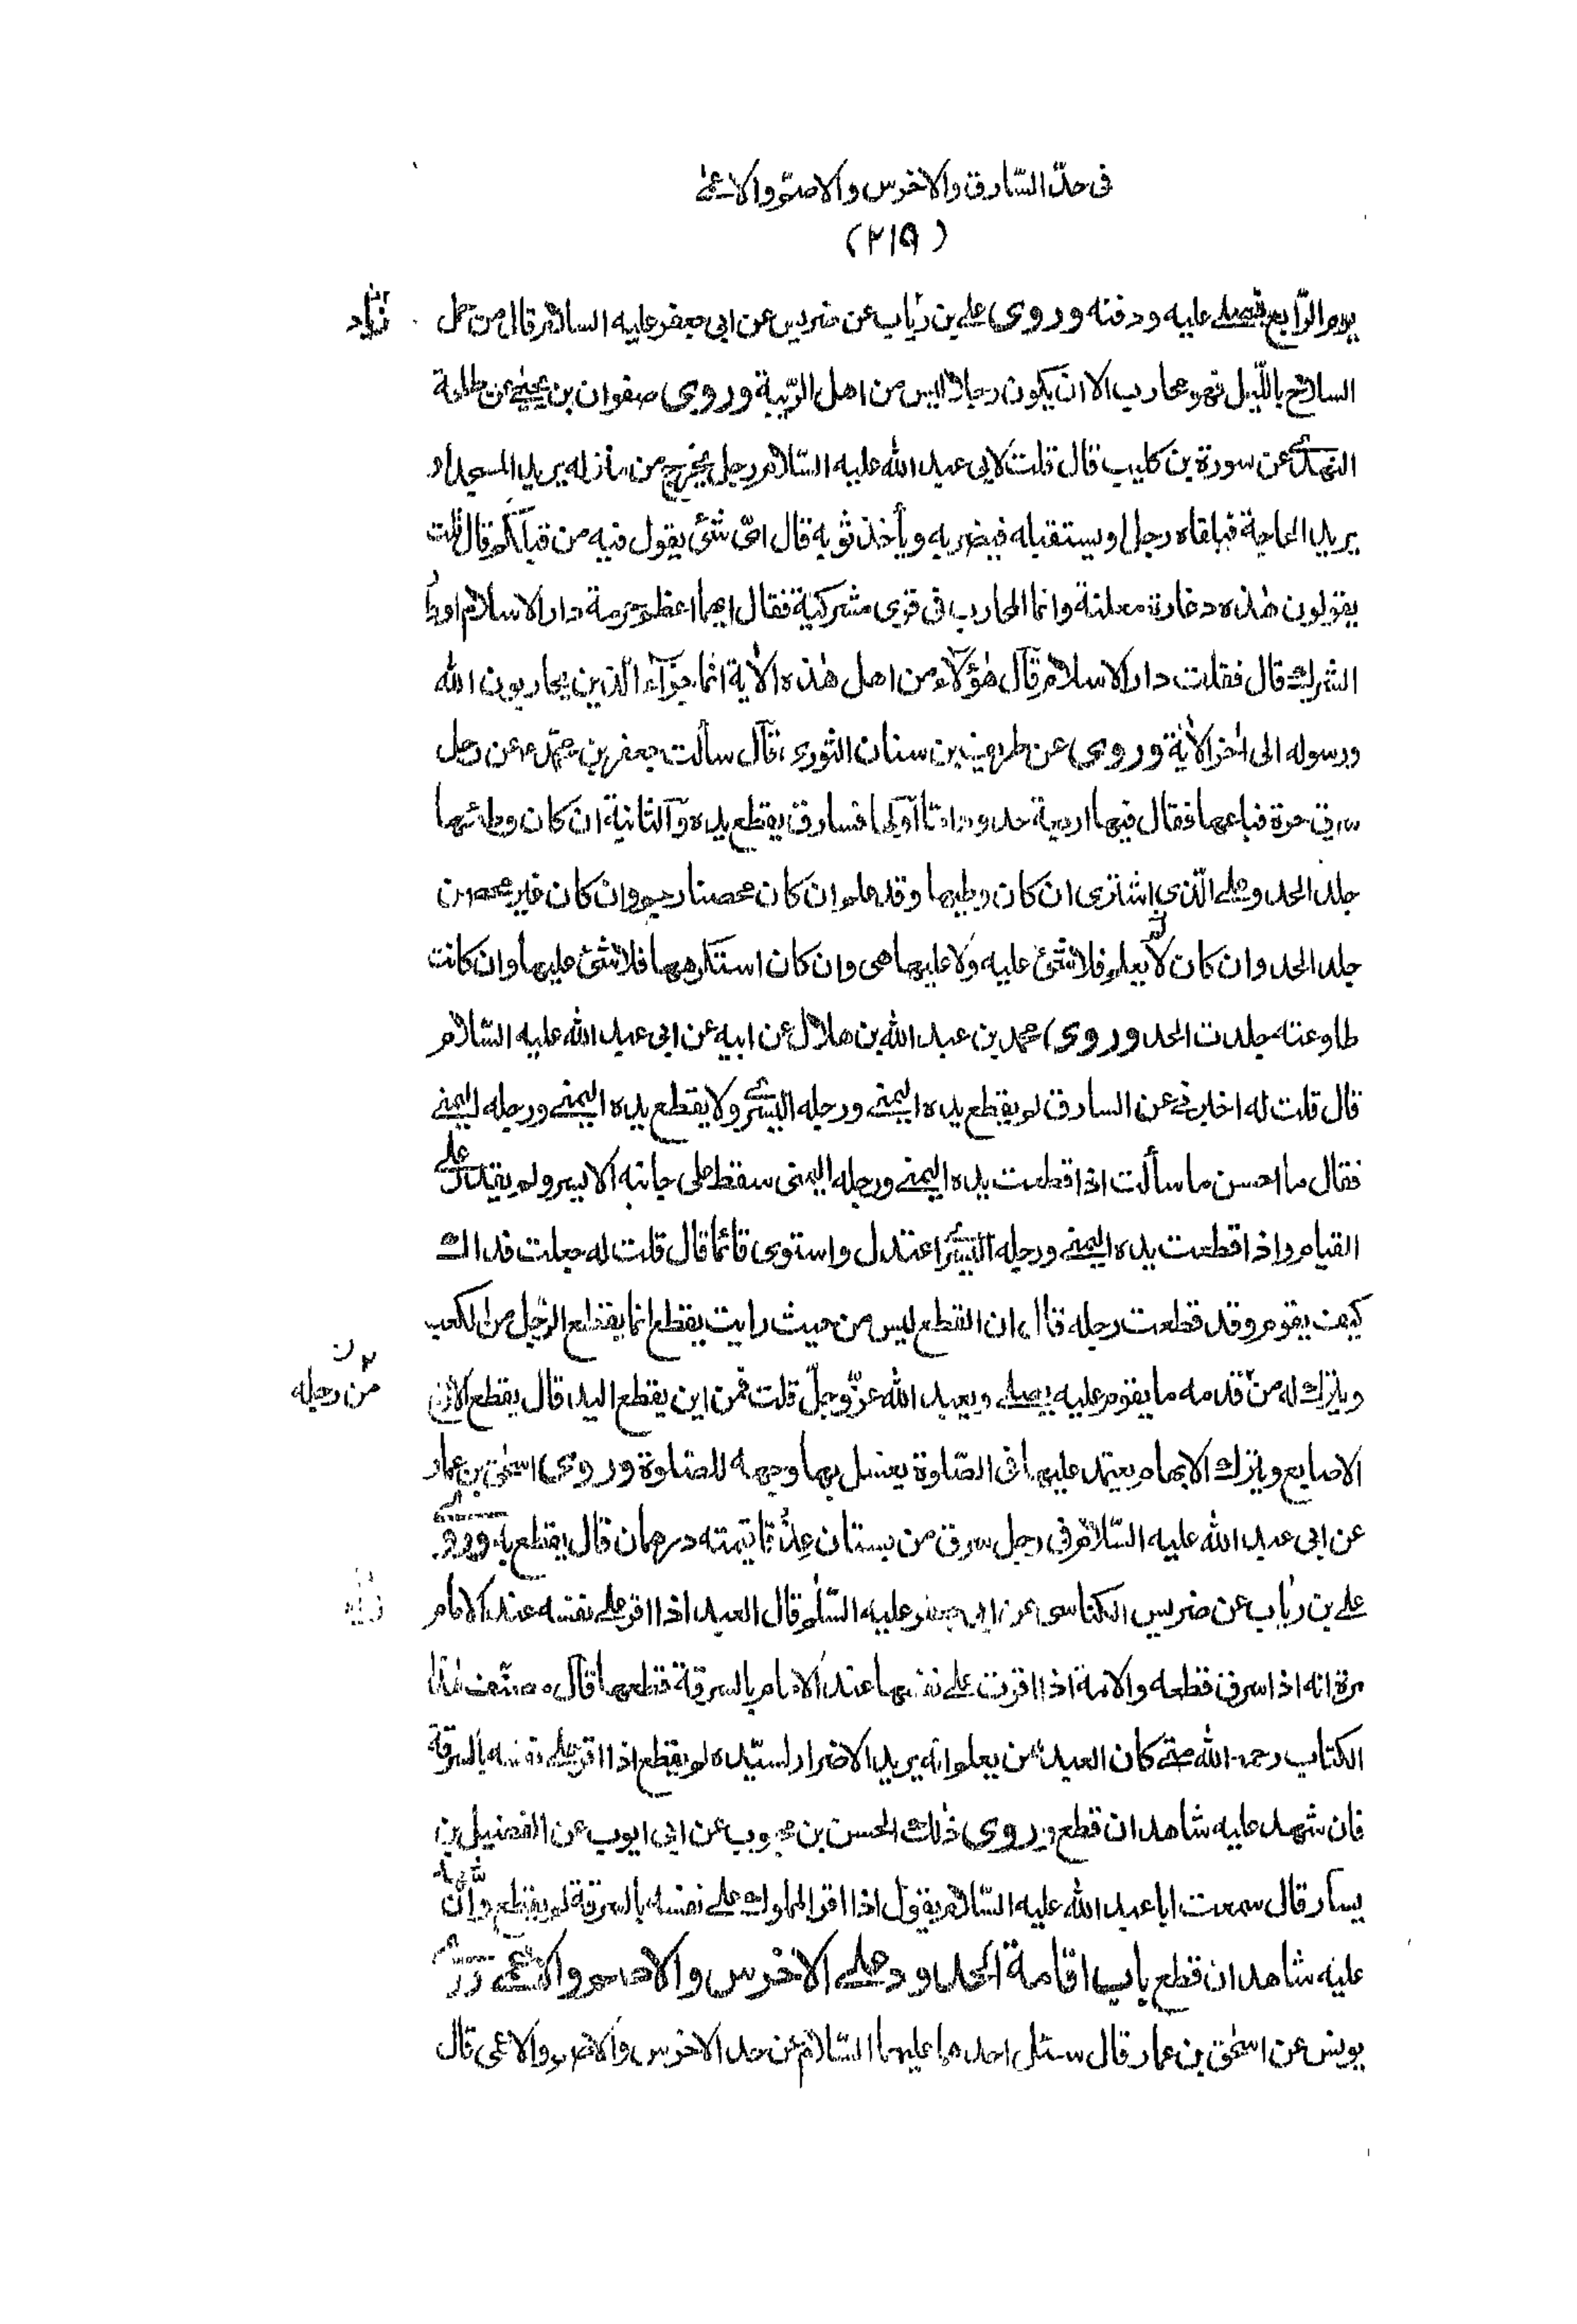 فى حدّ السّارق والاخرس والاصمّ والاعمىٰ
(٢١٥)
يوم الرّابع فصلى عليه ودفنه وروى على بن رئاب عن ضريس عن ابى جعفر عليه السلام قال من حمل
السلاح باللّيل فهو محارب الا ان يكون رجلا ليس من اهل الرّيبة وروى صفوان بن يحيى عن طلحة
النهدى عن سورة بن كليب قال قلت لابى عبد الله عليه السّلام رجل يخرج من منزله يريد المسجد او
يريد الحاجة فيلقاه رجل او يستقبله فيضربه ويأخذ ثوبه قال اىّ شئ يقول فيه من قبلكم قال قلت
يقولون هٰذه دغارة معلنة وانما المحارب فى قرى مشركية فقال ايهما اعظم حرمة دار الاسلام او دار
الشرك قال فقلت دار الاسلام قال هٰؤلاء من اهل هٰذه الاٰية انّما جزآء الّذين يحاربون الله
ورسوله الى اٰخر الاٰية وروى عن طريف بن سنان الثورى قال سألت جعفر بن محمّد ع عن رجل
سرق حرة فباعها فقال فيها اربعة حدود اما اولها فسارق يقطع يده والثانية ان كان وطئها
جلد الحد وعلى الّذى اشترى ان كان وطيها وقد علم ان كان محصنا رجم وان كان غير محصن
جلد الحد وان كان لا يعلم فلا شئ عليه ولا عليها هى وان كان استكرهها فلا شئ عليها وان كانت
طاوعته جلدت الحد وروى محمد بن عبد الله بن هلال عن ابيه عن ابى عبد الله عليه السّلام
قال قلت له اخبرنى عن السارق لم يقطع يده اليمنى ورجله اليسرى ولا يقطع يده اليمنى ورجله اليمنى
فقال ما احسن ما سألت اذا قطعت يده اليمنى ورجله اليمنى سقط على جانبه الايسر ولم يقدر على
القيام واذا قطعت يده اليمنى ورجله اليسرى اعتدل واستوى قائما قال قلت له جعلت فداك
كيف يقوم وقد قطعت رجله قال ان القطع ليس من حيث رايت يقطع انما يقطع الرّجل من الكعب
من رجله
ويترك له من قدمه ما يقوم عليه يصلى ويعبد الله عزّ وجلّ قلت فمن اين يقطع اليد قال يقطع الاربع
الاصابع ويترك الابهام يعتمد عليها فى الصّلوة يغسل بها وجهه للصّلوة وروى اسحٰق بن عمار
عن ابى عبد الله عليه السّلام فى رجل سرق من بستان عذقا قيمته درهمان قال يقطع به وروى
على بن رئاب عن ضريس الكناسى عن ابى جعفر عليه السّلٰم قال العبد اذا اقر على نفسه عند الامام
مرة انه اذا سرق قطعه والامة اذا اقرت على نفسها عند الامام بالسرقة قطعها قال مصنّف هٰذا
الكتاب رحمه الله متى كان العبد ممن يعلم انّه يريد الاضرار لسيّده لم يقطع اذا اقر على نفسه بالسرقة
فان شهد عليه شاهدان قطع وروى ذٰلك الحسن بن محبوب عن ابى ايوب عن الفضيل بن
يسار قال سمعت ابا عبد الله عليه السّلام يقول اذا اقر المملوك على نفسه بالسرقة لم يقطع وان شهد
عليه شاهدان قطع باب اقامة الحدود على الاخرس والاصم والاعمى روى
يونس عن اسحٰق بن عمار قال سئل احدهما عليهما السّلام عن حد الاخرس والاصم والاعمى قال